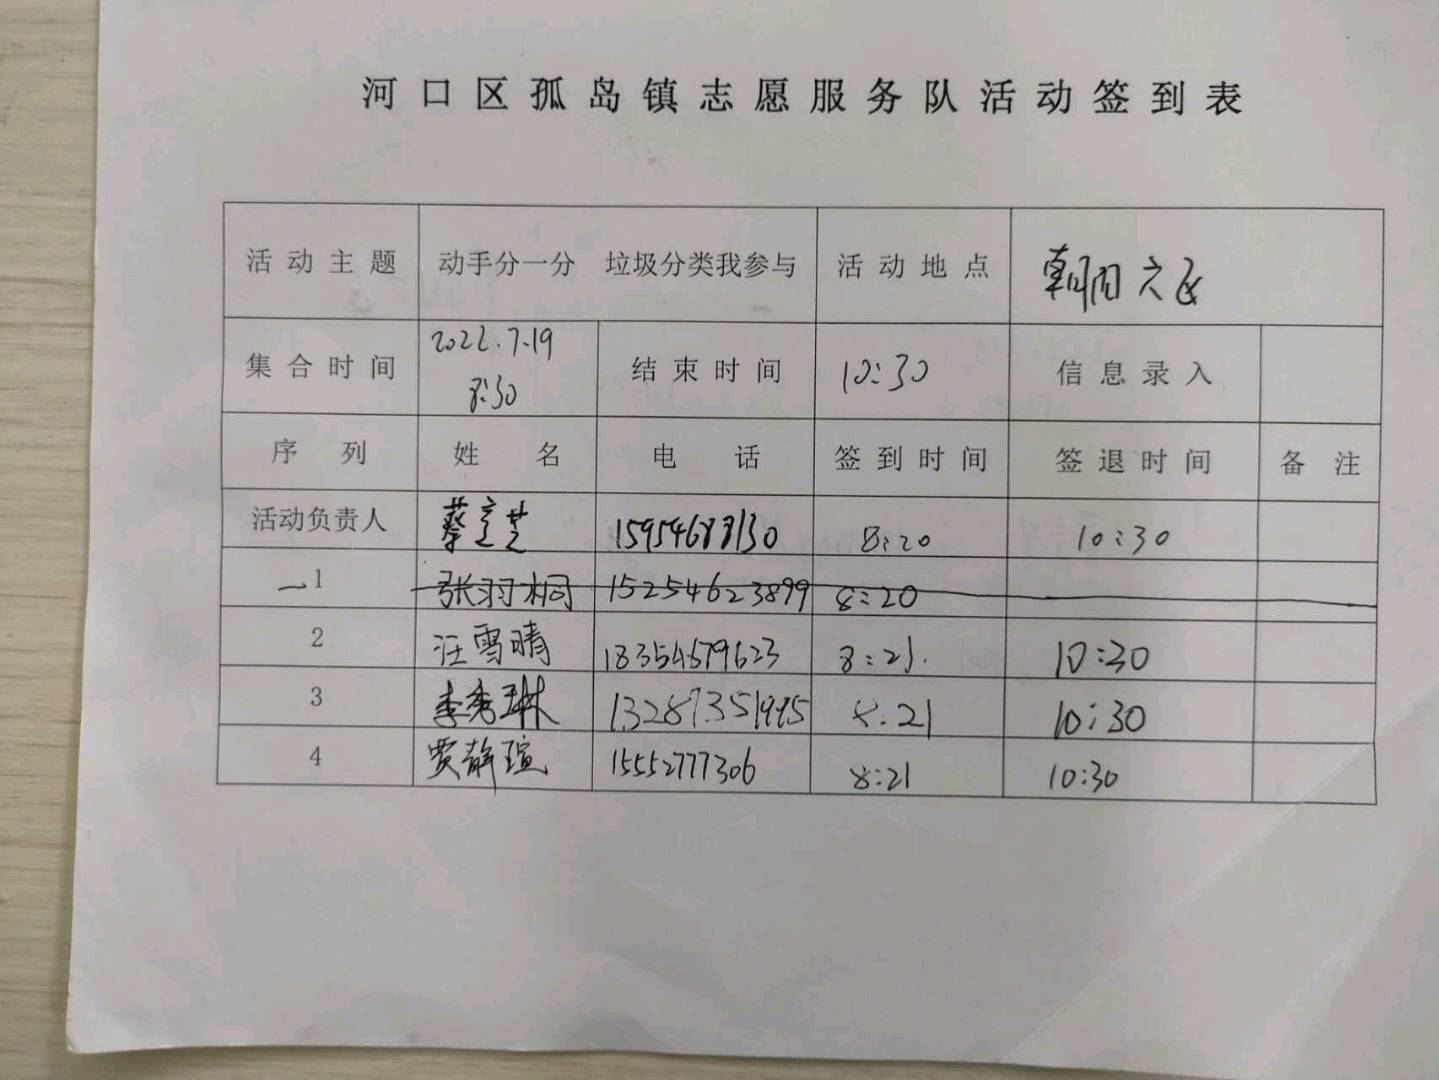 河口区孤岛镇志愿服务队活动签到表
活动主题 动手分一分 垃圾分类我参与 活动地点 朝阳六区
集合时间 2022.7.19 8:30 结束时间 10:30 信息录入
序列 姓名 电话 签到时间 签退时间 备注
活动负责人 蔡立芝 15954688130 8:20 10:30
1 张羽桐 15254623899 8:20
2 汪雪晴 18354579623 8:21. 10:30
3 李秀琳 13287351995 8:21 10:30
4 贾静瑄 15552777306 8:21 10:30